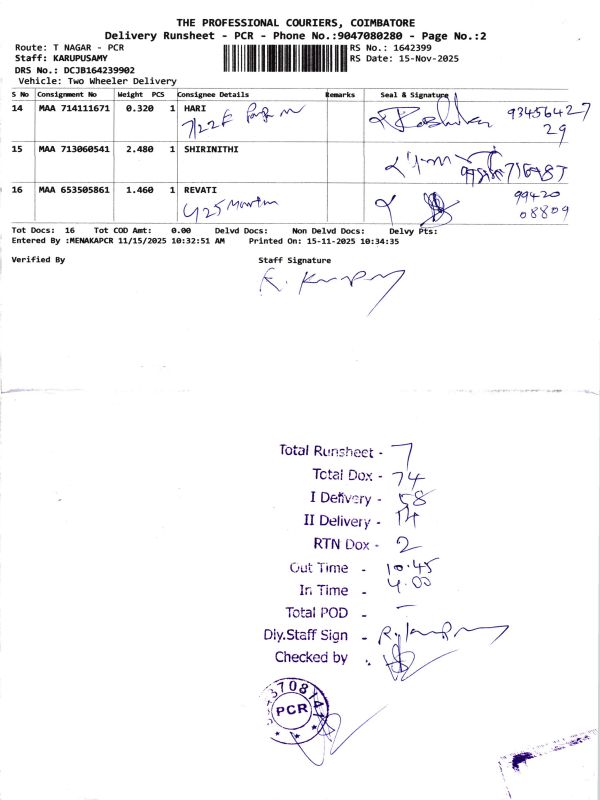 THE PROFESSIONAL COURIERS, COIMBATORE
Delivery Runsheet - PCR - Phone No.:9047080280 - Page No.:2
Route: T NAGAR - PCR
RS No.: 1642399
Staff: KARUPUSAMY
RS Date: 15-Nov-2025
DRS No.: DCJB164239902
Vehicle: Two Wheeler Delivery
S No Consignment No Weight PCS Consignee Details Remarks Seal & Signature
14 MAA 714111671 0.320 1 HARI
93456427
29
15 MAA 713060541 2.480 1 SHIRINITHI
16 MAA 653505861 1.460 1 REVATI
99420
08809
Tot Docs: 16 Tot COD Amt: 0.00 Delvd Docs: Non Delvd Docs: Delvy Pts:
Entered By :MENAKAPCR 11/15/2025 10:32:51 AM Printed On: 15-11-2025 10:34:35
Verified By Staff Signature
Total Runsheet - 7
Total Dox - 74
I Delivery - 58
II Delivery - 14
RTN Dox - 2
Out Time - 10.45
In Time - 4.00
Total POD - –
Dly.Staff Sign -
Checked by :
PCR